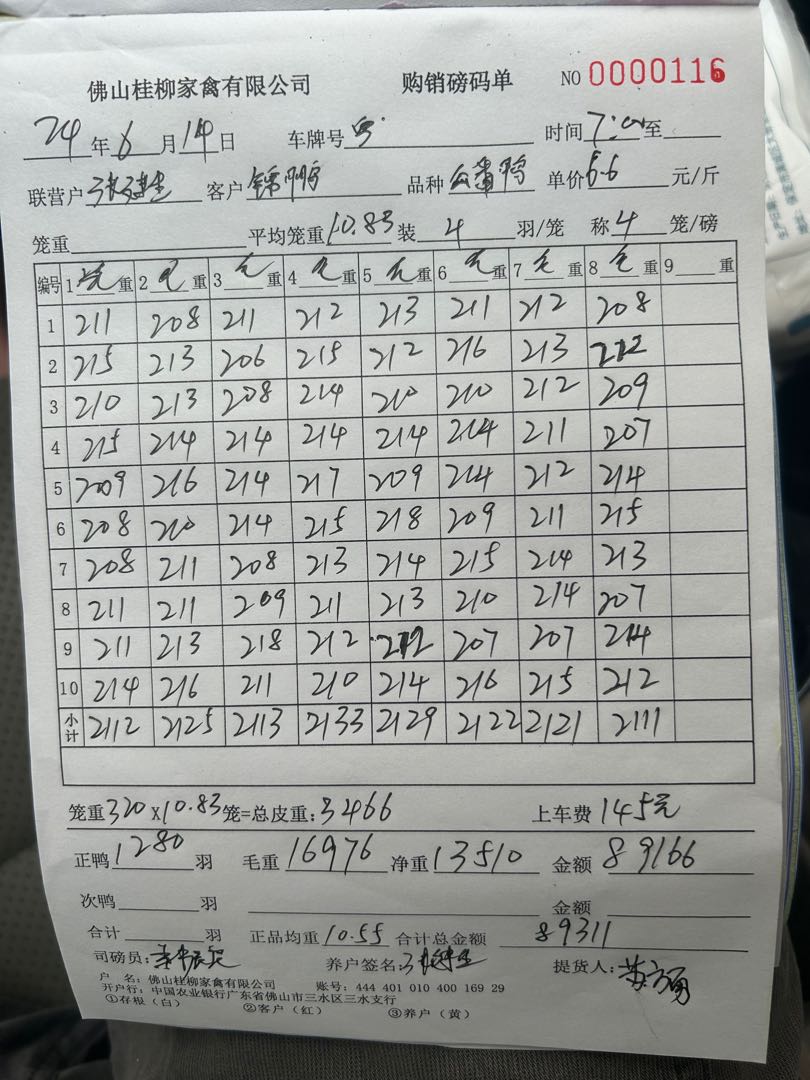 佛山桂柳家禽有限公司 购销磅码单 NO 0000116
24年6月14日 车牌号 时间7:00至
联营户 客户锦鹏 品种 单价6.6元/斤
笼重 平均笼重10.83装4羽/笼 称4笼/磅
编号 1毛重 2毛重 3毛重 4毛重 5毛重 6毛重 7毛重 8毛重 9 重
1 211 208 211 212 213 211 212 208
2 215 213 206 215 212 216 213 212
3 210 213 208 214 210 210 212 209
4 215 214 214 214 214 214 211 207
5 209 216 214 217 209 214 212 214
6 208 210 214 215 218 209 211 215
7 208 211 208 213 214 215 214 213
8 211 211 209 211 213 210 214 207
9 211 213 218 212 212 207 207 214
10 214 216 211 210 214 216 215 212
小计 2112 2125 2113 2133 2129 2122 2121 2111
笼重320×10.83笼=总皮重:3466 上车费145元
正鸭1280羽 毛重16976 净重13510 金额89166
次鸭 羽 金额
合计 羽 正品均重10.55 合计总金额89311
司磅员: 养户签名: 提货人:
户 名:佛山桂柳家禽有限公司 账号:444 401 010 400 169 29
开户行:中国农业银行广东省佛山市三水区三水支行
①存根(白) ②客户(红) ③养户(黄)